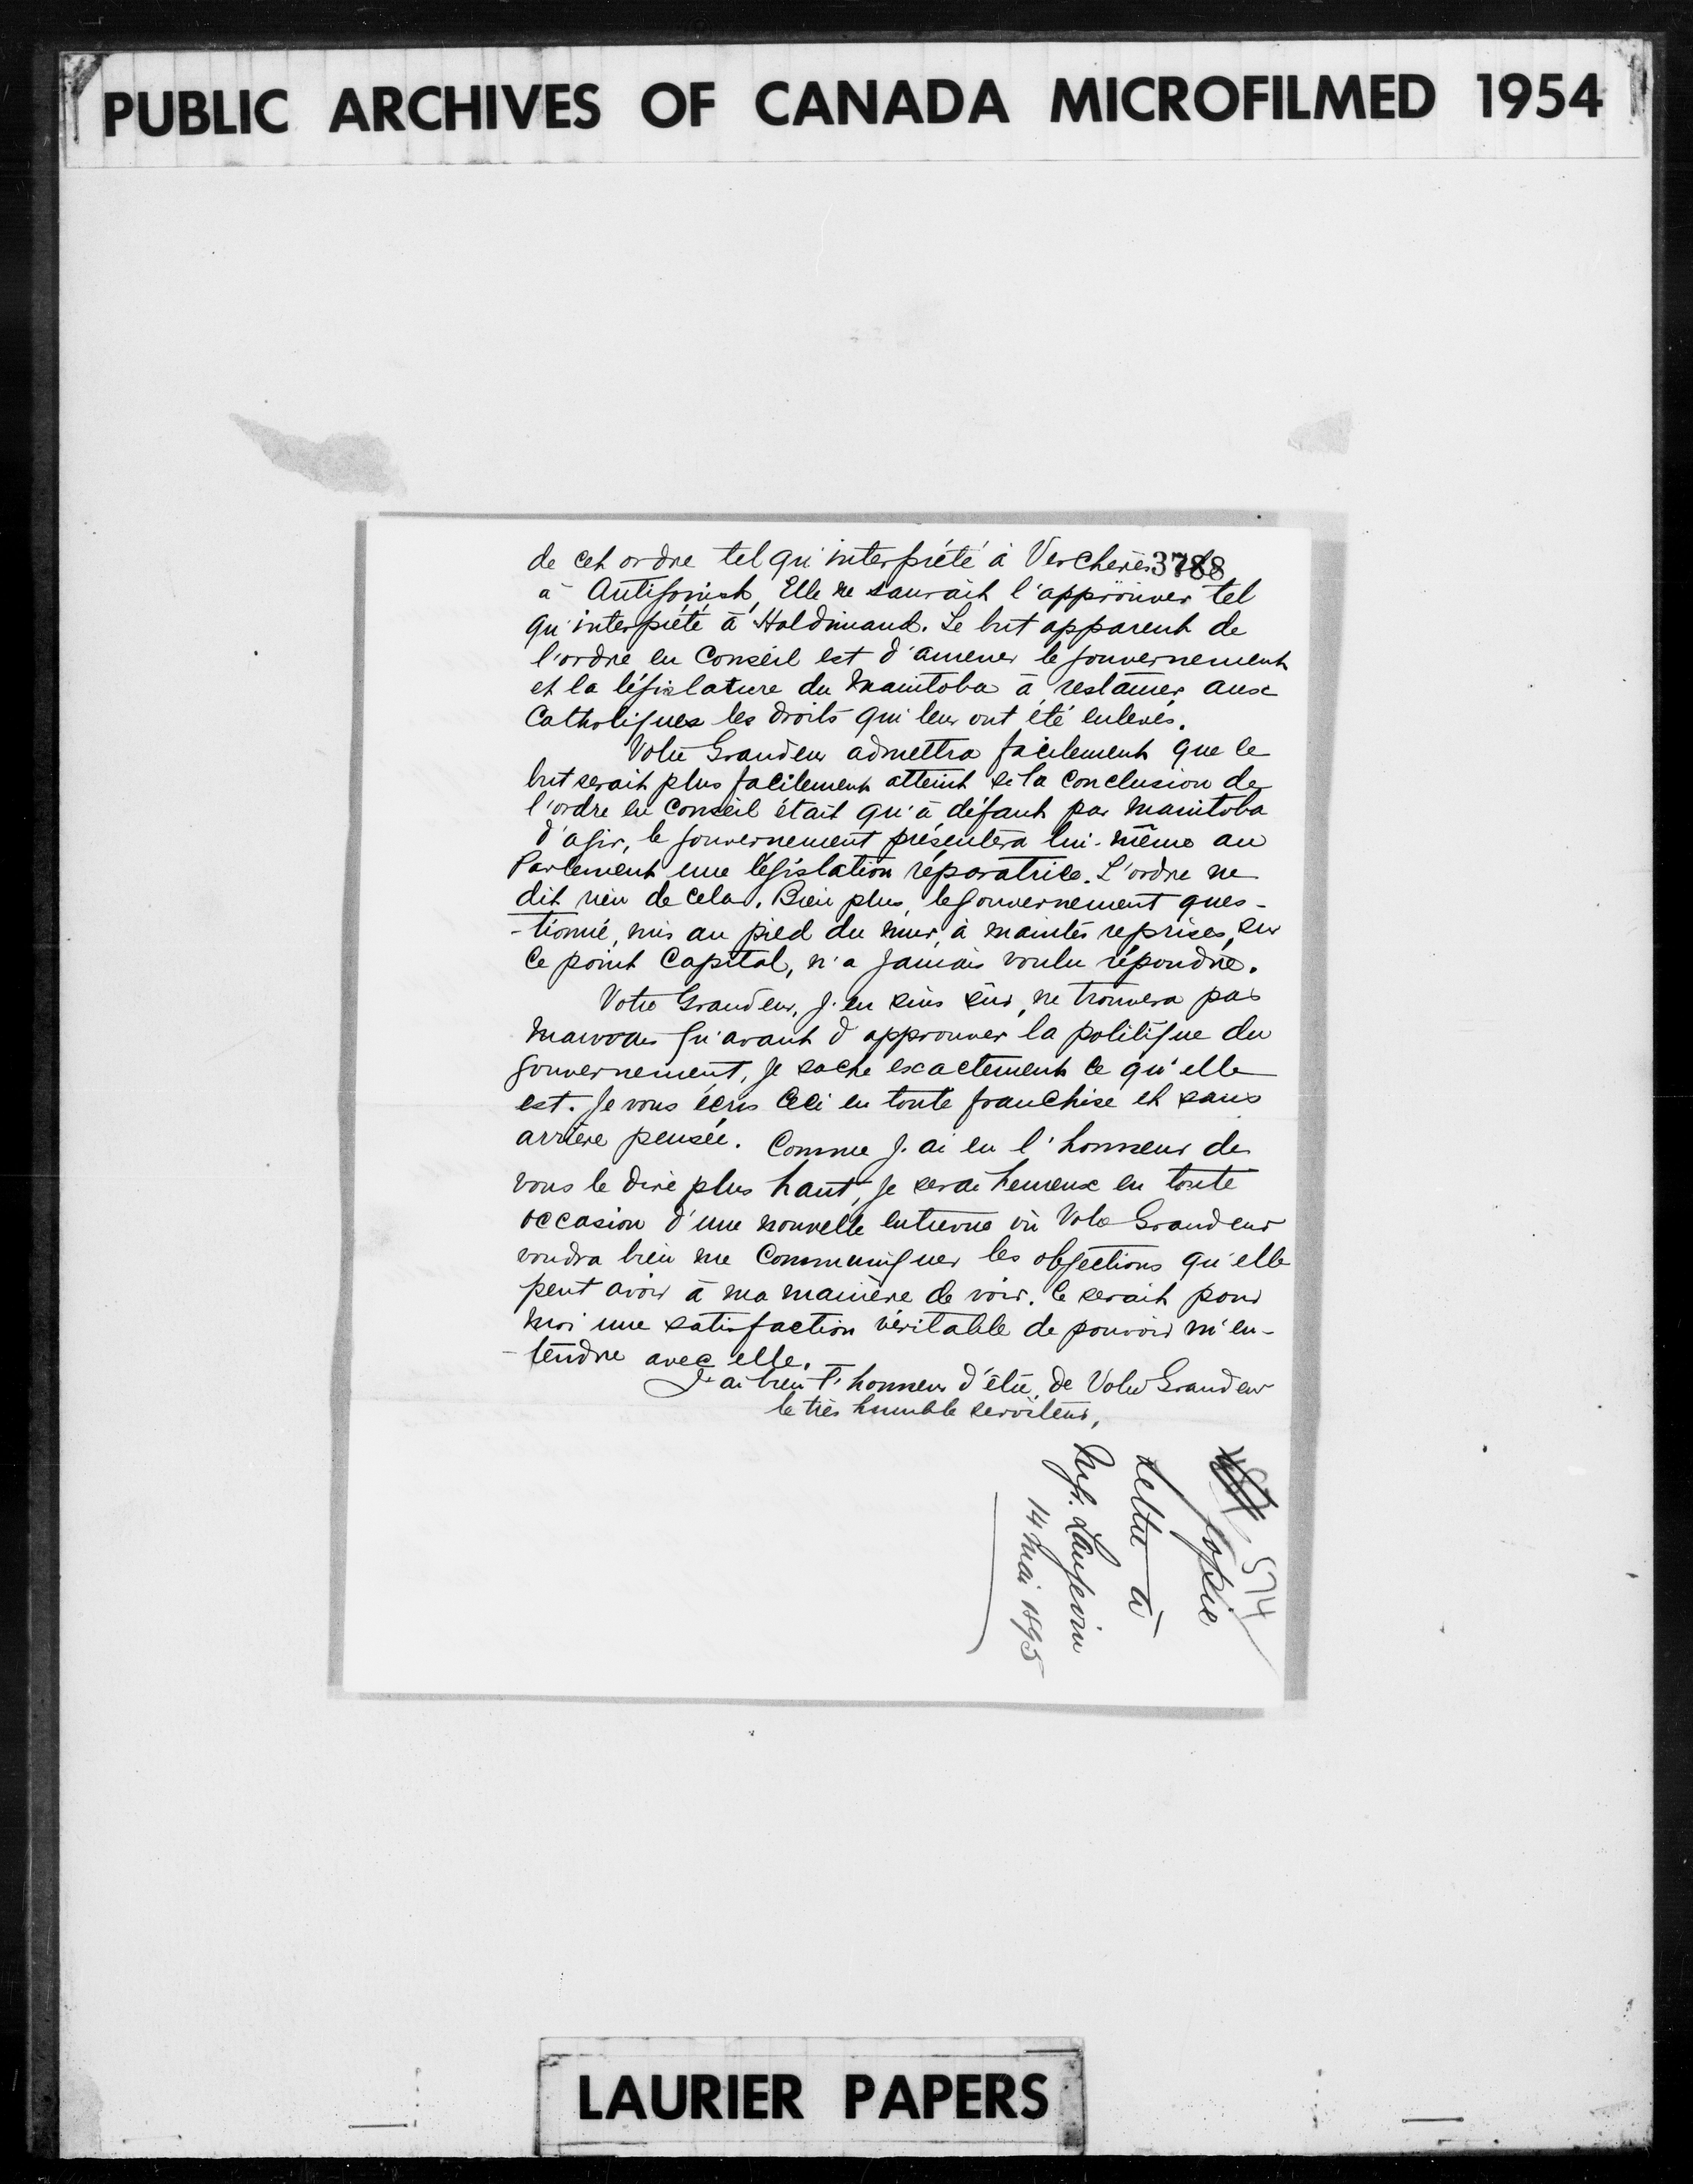 PUBLIC ARCHIVES OF CANADA MICROFILMED 1954
de cet ordre tel qu'interprété à Verchères
3788
à Antigonish, Elle ne saurait l'approuver tel
qu'interprété à Haldimand. Le but apparent de
l'ordre en Conseil est d'amener le gouvernement
et la législature du Manitoba à restaurer aux
Catholiques les droits qui leur ont été enlevés.
Votre Grandeur admettra facilement que le
but serait plus facilement atteint si la conclusion de
l'ordre en Conseil était qu'à défaut par Manitoba
d'agir, le gouvernement présentera lui-même au
Parlement une législation réparatrice. L'ordre ne
dit rien de cela. Bien plus, le gouvernement ques-
-tionné, mis au pied du mur, à maintes reprises, sur
ce point Capital, n'a jamais voulu répondre.
Votre Grandeur, j'en suis sûr, ne trouvera pas
mauvais qu'avant d'approuver la politique du
gouvernement, je sache exactement ce qu'elle
est. Je vous écris ceci en toute franchise et sans
arrière pensée. Comme j'ai eu l'honneur de
vous le dire plus haut, je serai heureux en toute
occasion d'une nouvelle entrevue où Votre Grandeur
voudra bien me Communiquer les objections qu'elle
peut avoir à ma manière de voir. Ce serait pour
moi une satisfaction véritable de pouvoir m'en-
-tendre avec elle.
J'ai bien l'honneur d'être, de Votre Grandeur
le très humble serviteur,
574
Copie
Lettre à
Mgr. Langevin
14 mai 1895
LAURIER PAPERS